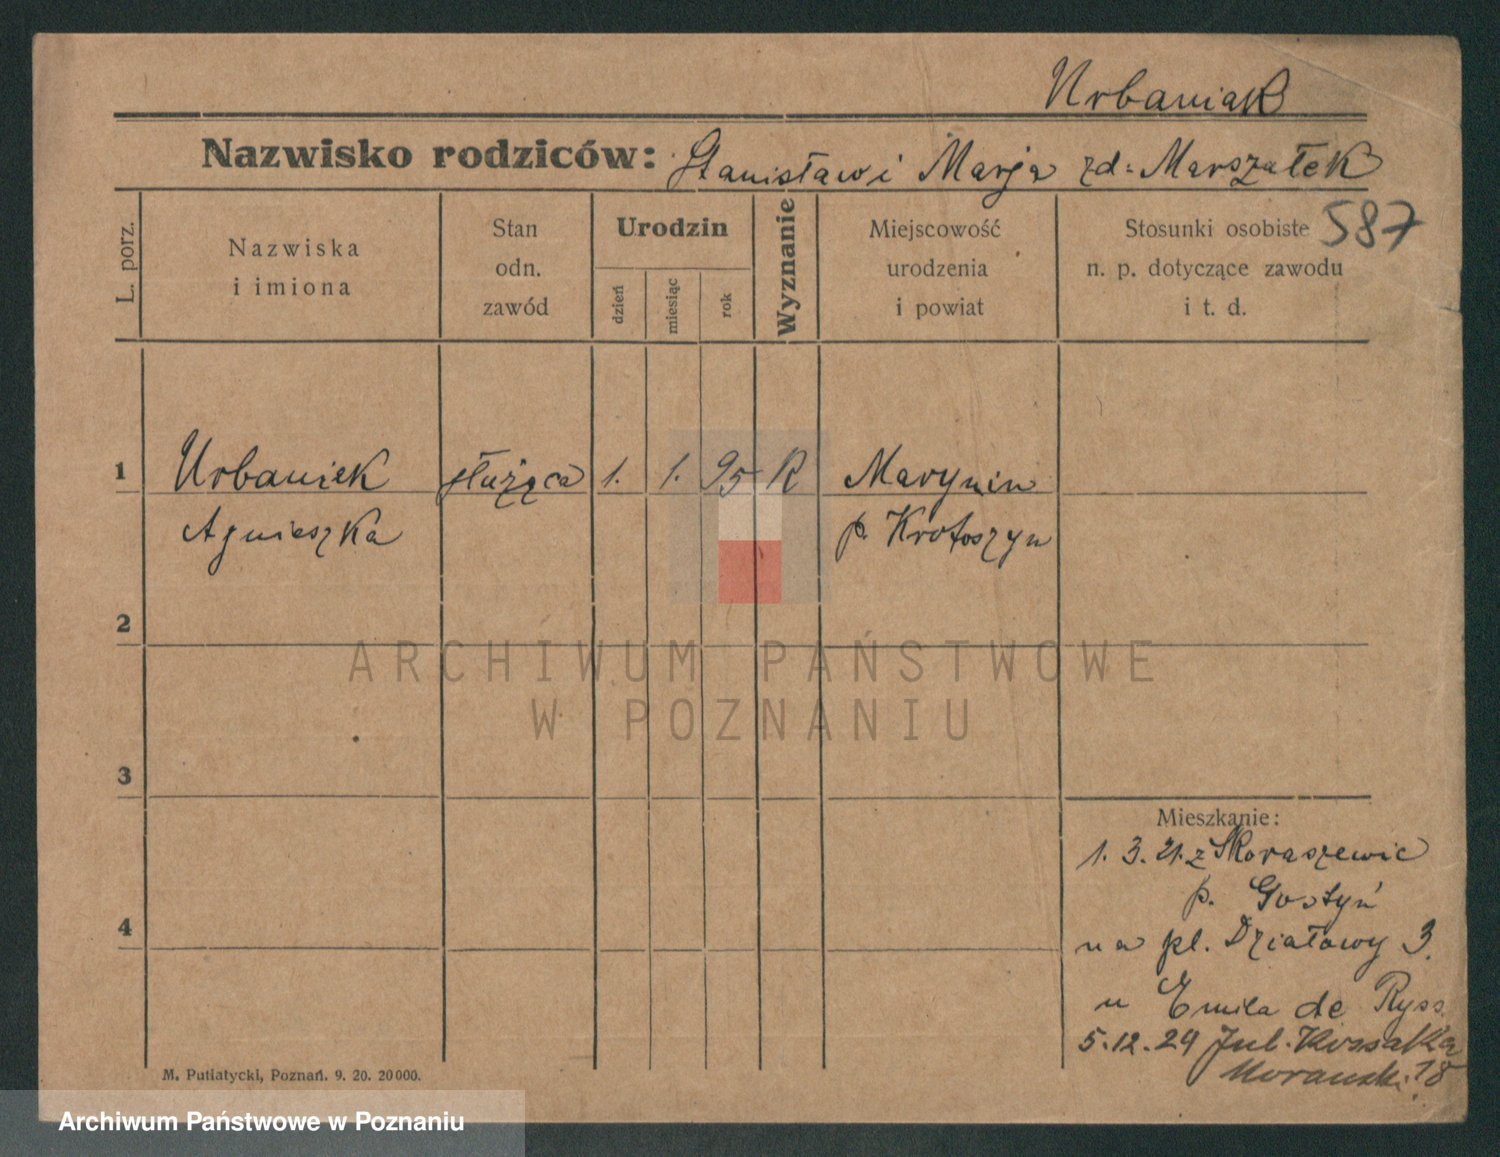 Urbaniak
Nazwisko rodziców: Stanisław i Marja zd: Marszałek
587
L. porz.
Nazwiska
i imiona
Stan
odn.
zawód
Urodzin
dzień
miesiąc
rok
Wyznanie
Miejscowość
urodzenia
i powiat
Stosunki osobiste
n. p. dotyczące zawodu
i t. d.
1 Urbaniak służąca 1. 1. 95 R Marynin
Agnieszka p. Krotoszyn
2
ARCHIWUM PAŃSTWOWE
W POZNANIU
3
Mieszkanie:
1. 3. 21. z Skoraszewic
p. Gostyń
4
na pl. Działowy 3.
u Emila de Ryss.
5.12.29 Jul. Kossaka
18
M. Putiatycki, Poznań. 9. 20. 20000.
Archiwum Państwowe w Poznaniu